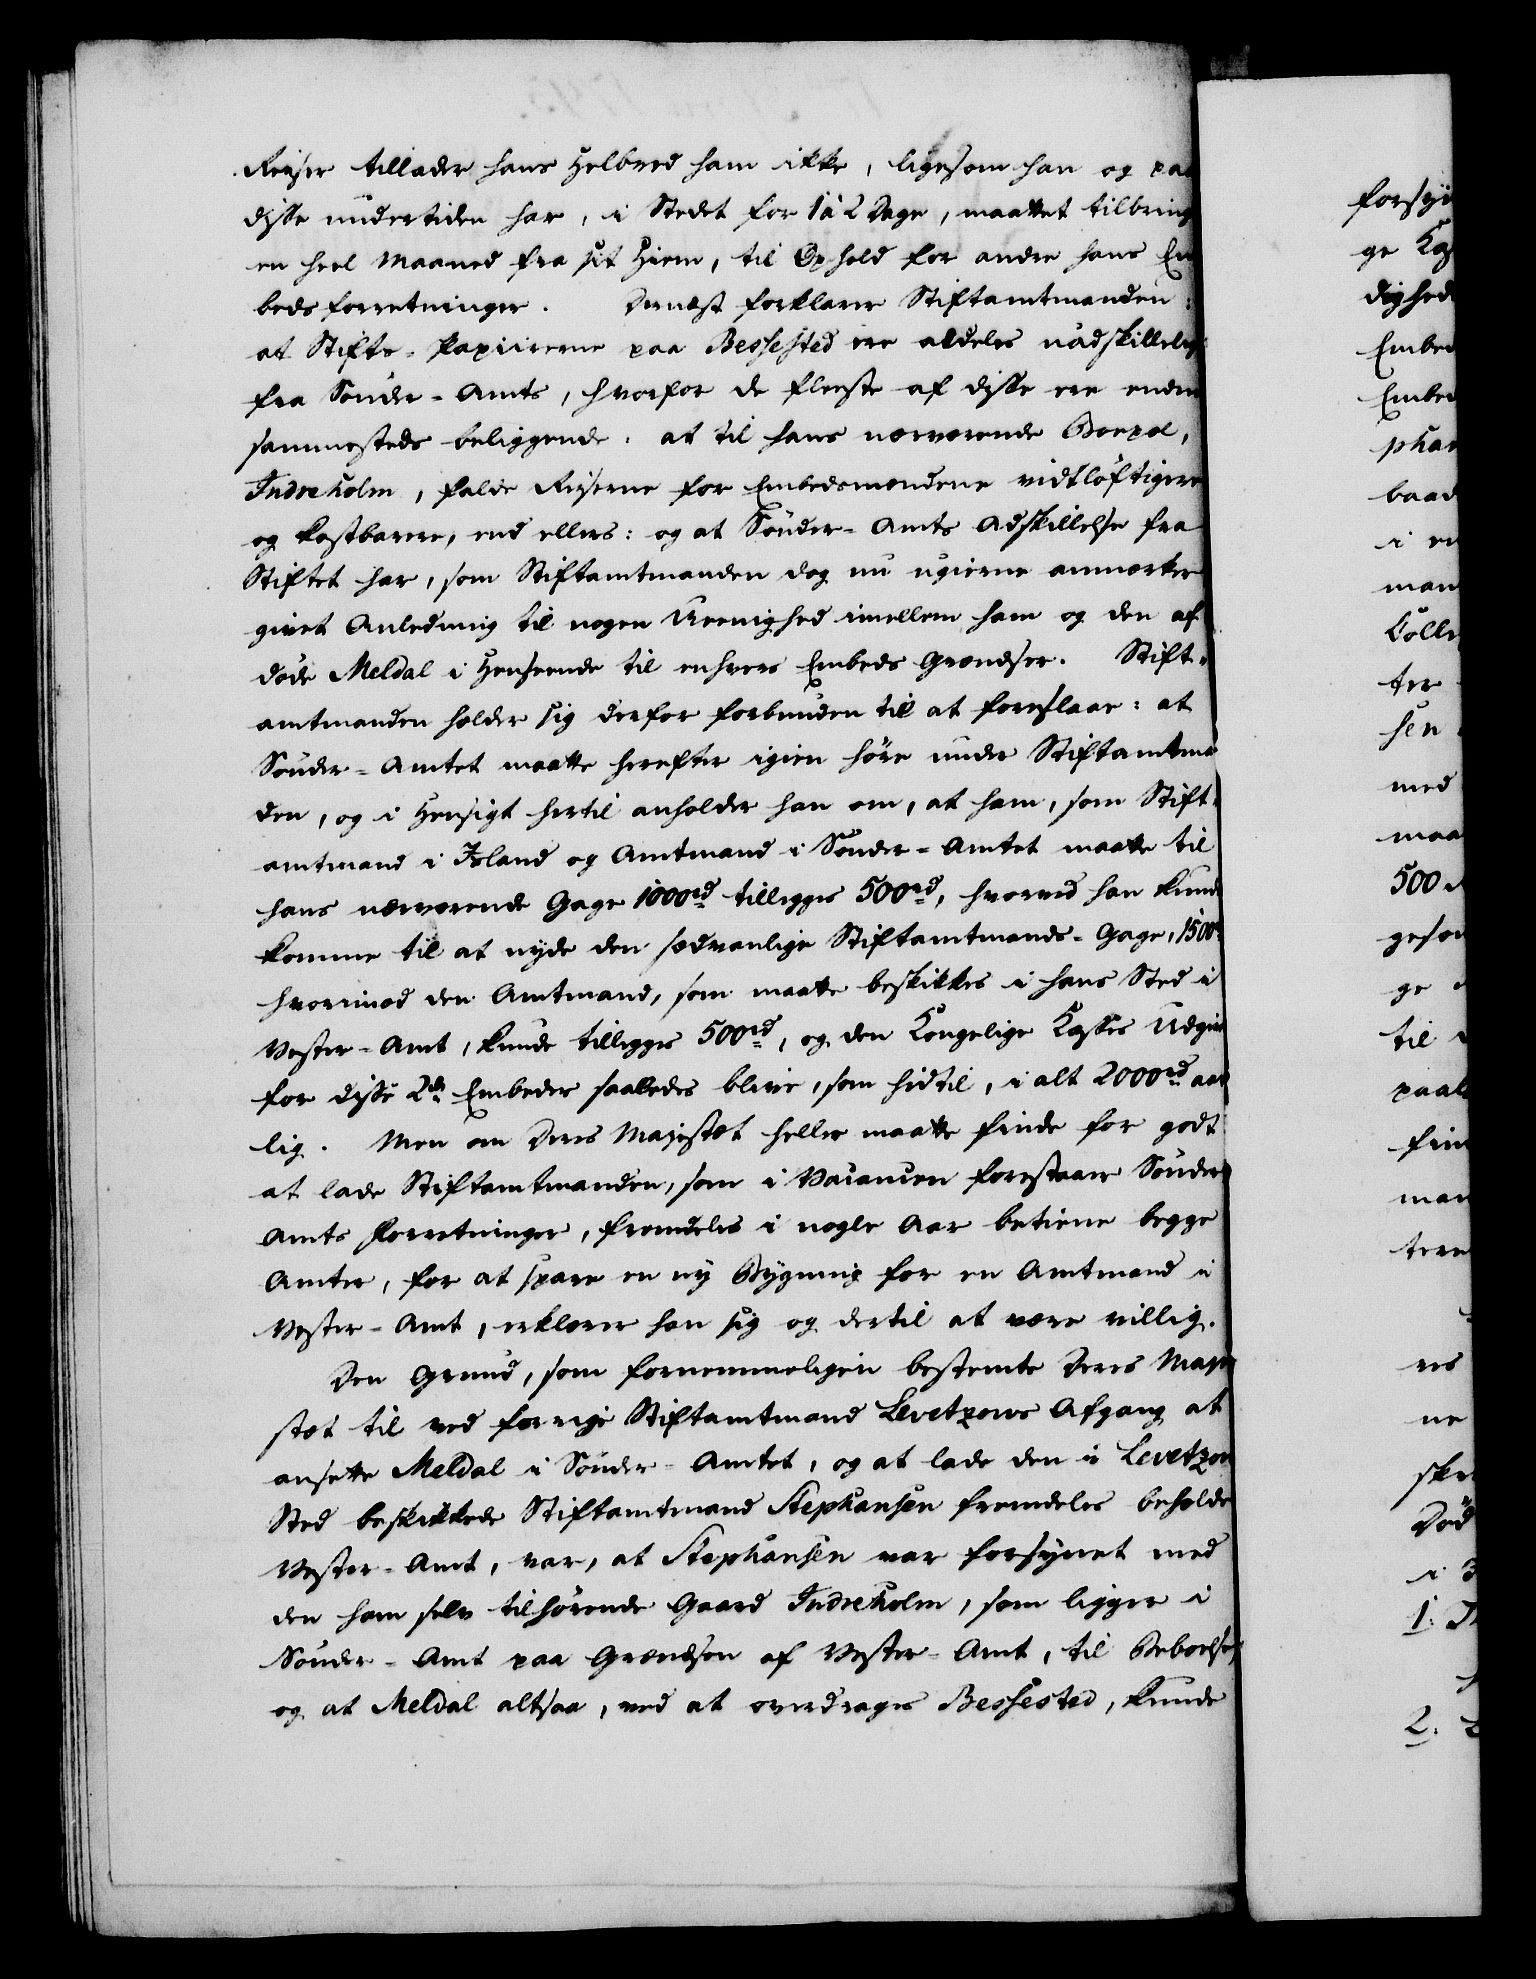 Reiser tillader hans Helbred ham ikke, ligesom han og paa
disse undertiden har, i Stedet for 1 à 2 Dage, maattet tilbring
en heel Maaned fra sit Hiem, til Ophold for andre hans Em
bedsforretninger. Dernæst forklarer Stiftamtmanden:
at Stifts-Papiirerne paa Bessested ere aldeles uadskillelig
fra Sønder-Amts, hvorfor de fleeste af disse ere endnu
sammesteds beliggende: at til hans nærværende Boepæl,
Indreholm, falde Reiserne for Embedsmændene vidtløftigere
og kostbarere, end ellers: og at Sønder-Amts Adskillelse fra
Stiftet har, som Stiftamtmanden dog nu ugierne anmærker
givet Anledning til nogen Ueenighed imellem ham og den af
døde Meldal i Henseende til enhvers Embeds Grændser. Stift-
amtmanden holder sig derfor forbunden til at foreslaae: at
Sønder-Amtet maatte herefter igien høre under Stiftamtma
den, og i Hensigt hertil anholder han om, at ham, som Stift-
amtmand i Island og Amtmand i Sønder-Amtet maatte til
hans nærværende Gage 1000rd tillegges 500rd, hvorved han kunde
komme til at nyde den sædvanlige Stiftamtmands-Gage, 1500
hvorimod den Amtmand, som maatte beskikkes i hans Sted i
Vester-Amt, kunde tillegges 500rd, og den Kongelige Kasses Udgivt
for disse 2de Embeder saaledes blive, som hidtil, i alt 2000rd aar
lig. Men om Deres Majestæt heller maatte finde for godt
at lade Stiftamtmanden, som i Vacancen forestaaer Sønder
Amts Forretninger, fremdeles i nogle Aar betiene begge
Amter, for at spare en ny Bygning for en Amtmand i
Vester-Amt, erklærer han sig og dertil at være villig.
Den Grund, som fornemmeligen bestemte Deres Maje
stæt til ved forrige Stiftamtmand Levetzows Afgang at
ansætte Meldal i Sønder-Amtet, og at lade den i Levetzow
Sted beskikkede Stiftamtmand Stephansen fremdeles beholde
Vester-Amt, var, at Stephansen var forsynet med
den ham selv tilhørende Gaard Indreholm, som ligger i
Sønder-Amt paa Grændsen af Vester-Amt, til Beboelse,
og at Meldal altsaa, ved at overdrages Bessested, kunde
forsyn
ge Kas
dighed
Embed
Embed
phan
baad
i en
man
Colle
ter
sen
med
maa
500
gesom
ge
til
paal
fin
man
tere
res
ne
ske
Død
i 3
1:
2: